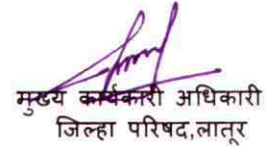 मुख्य कार्यकारी अधिकारी
जिल्हा परिषद,लातूर